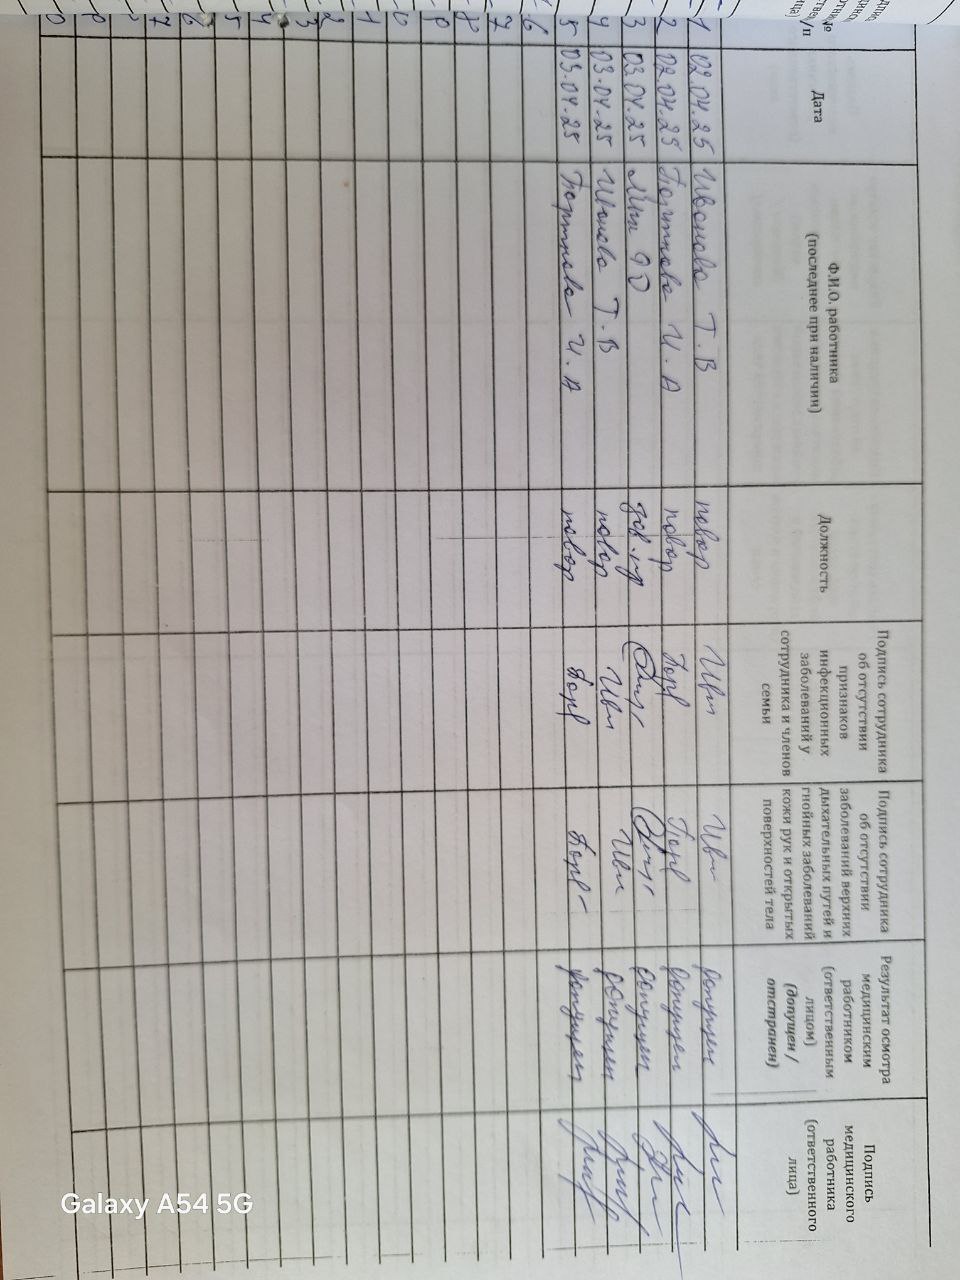 № п/п Дата Ф.И.О. работника (последнее при наличии) Должность Подпись сотрудника об отсутствии признаков инфекционных заболеваний у сотрудника и членов семьи Подпись сотрудника об отсутствии заболеваний верхних дыхательных путей и гнойных заболеваний кожи рук и открытых поверхностей тела Результат осмотра медицинским работником (ответственным лицом) (допущен / отстранен) Подпись медицинского работника (ответственного лица)
1 02.04.25 Иванова Т.В повар Ивн Ивн допущен
2 02.04.25 Портнова И.А повар Порв Порв допущен
3 03.04.25 допущен
4 03.04.25 Иванова Т.В повар Ивн Ивн допущен
5 03.04.25 Портнова И.А повар Порв Порв допущен
6
7
8
9
0
1
2
3
4
5
6
7
9
0
Galaxy A54 5G